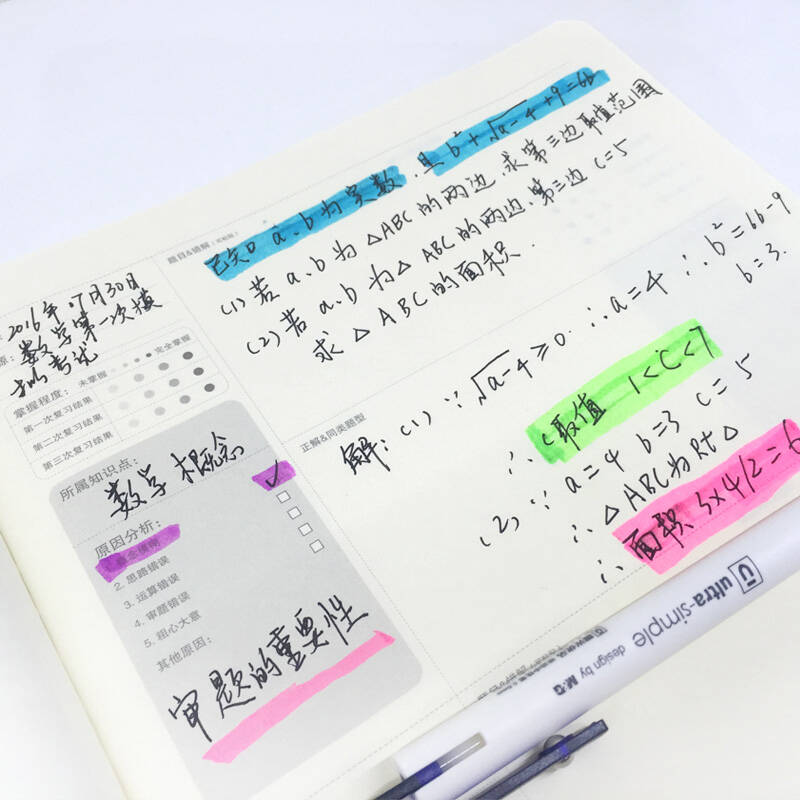 题目&错解
已知 a、b为实数，且 b²+√a-4+9=6b
(1)若 a、b 为△ABC的两边，求第三边取值范围
(2)若 a、b 为△ABC的两边，第三边 C=5
求△ABC的面积.
2016年07月30日
数学第一次模
拟考试
掌握程度：未掌握 完全掌握
第一次复习结果
第二次复习结果
第三次复习结果
所属知识点：
数学概念
原因分析：
2. 思路错误
3. 运算错误
4. 审题错误
5. 粗心大意
其他原因：
审题的重要性
正解&同类题型
解：(1) ∵√a-4≥0. ∴a=4 ∴b²=6b-9
b=3.
∴ c取值 1<C<7
(2) ∵ a=4 b=3 C=5
∴△ABC为Rt△
∴面积 3×4/2=6
ultra-simple design by M&G